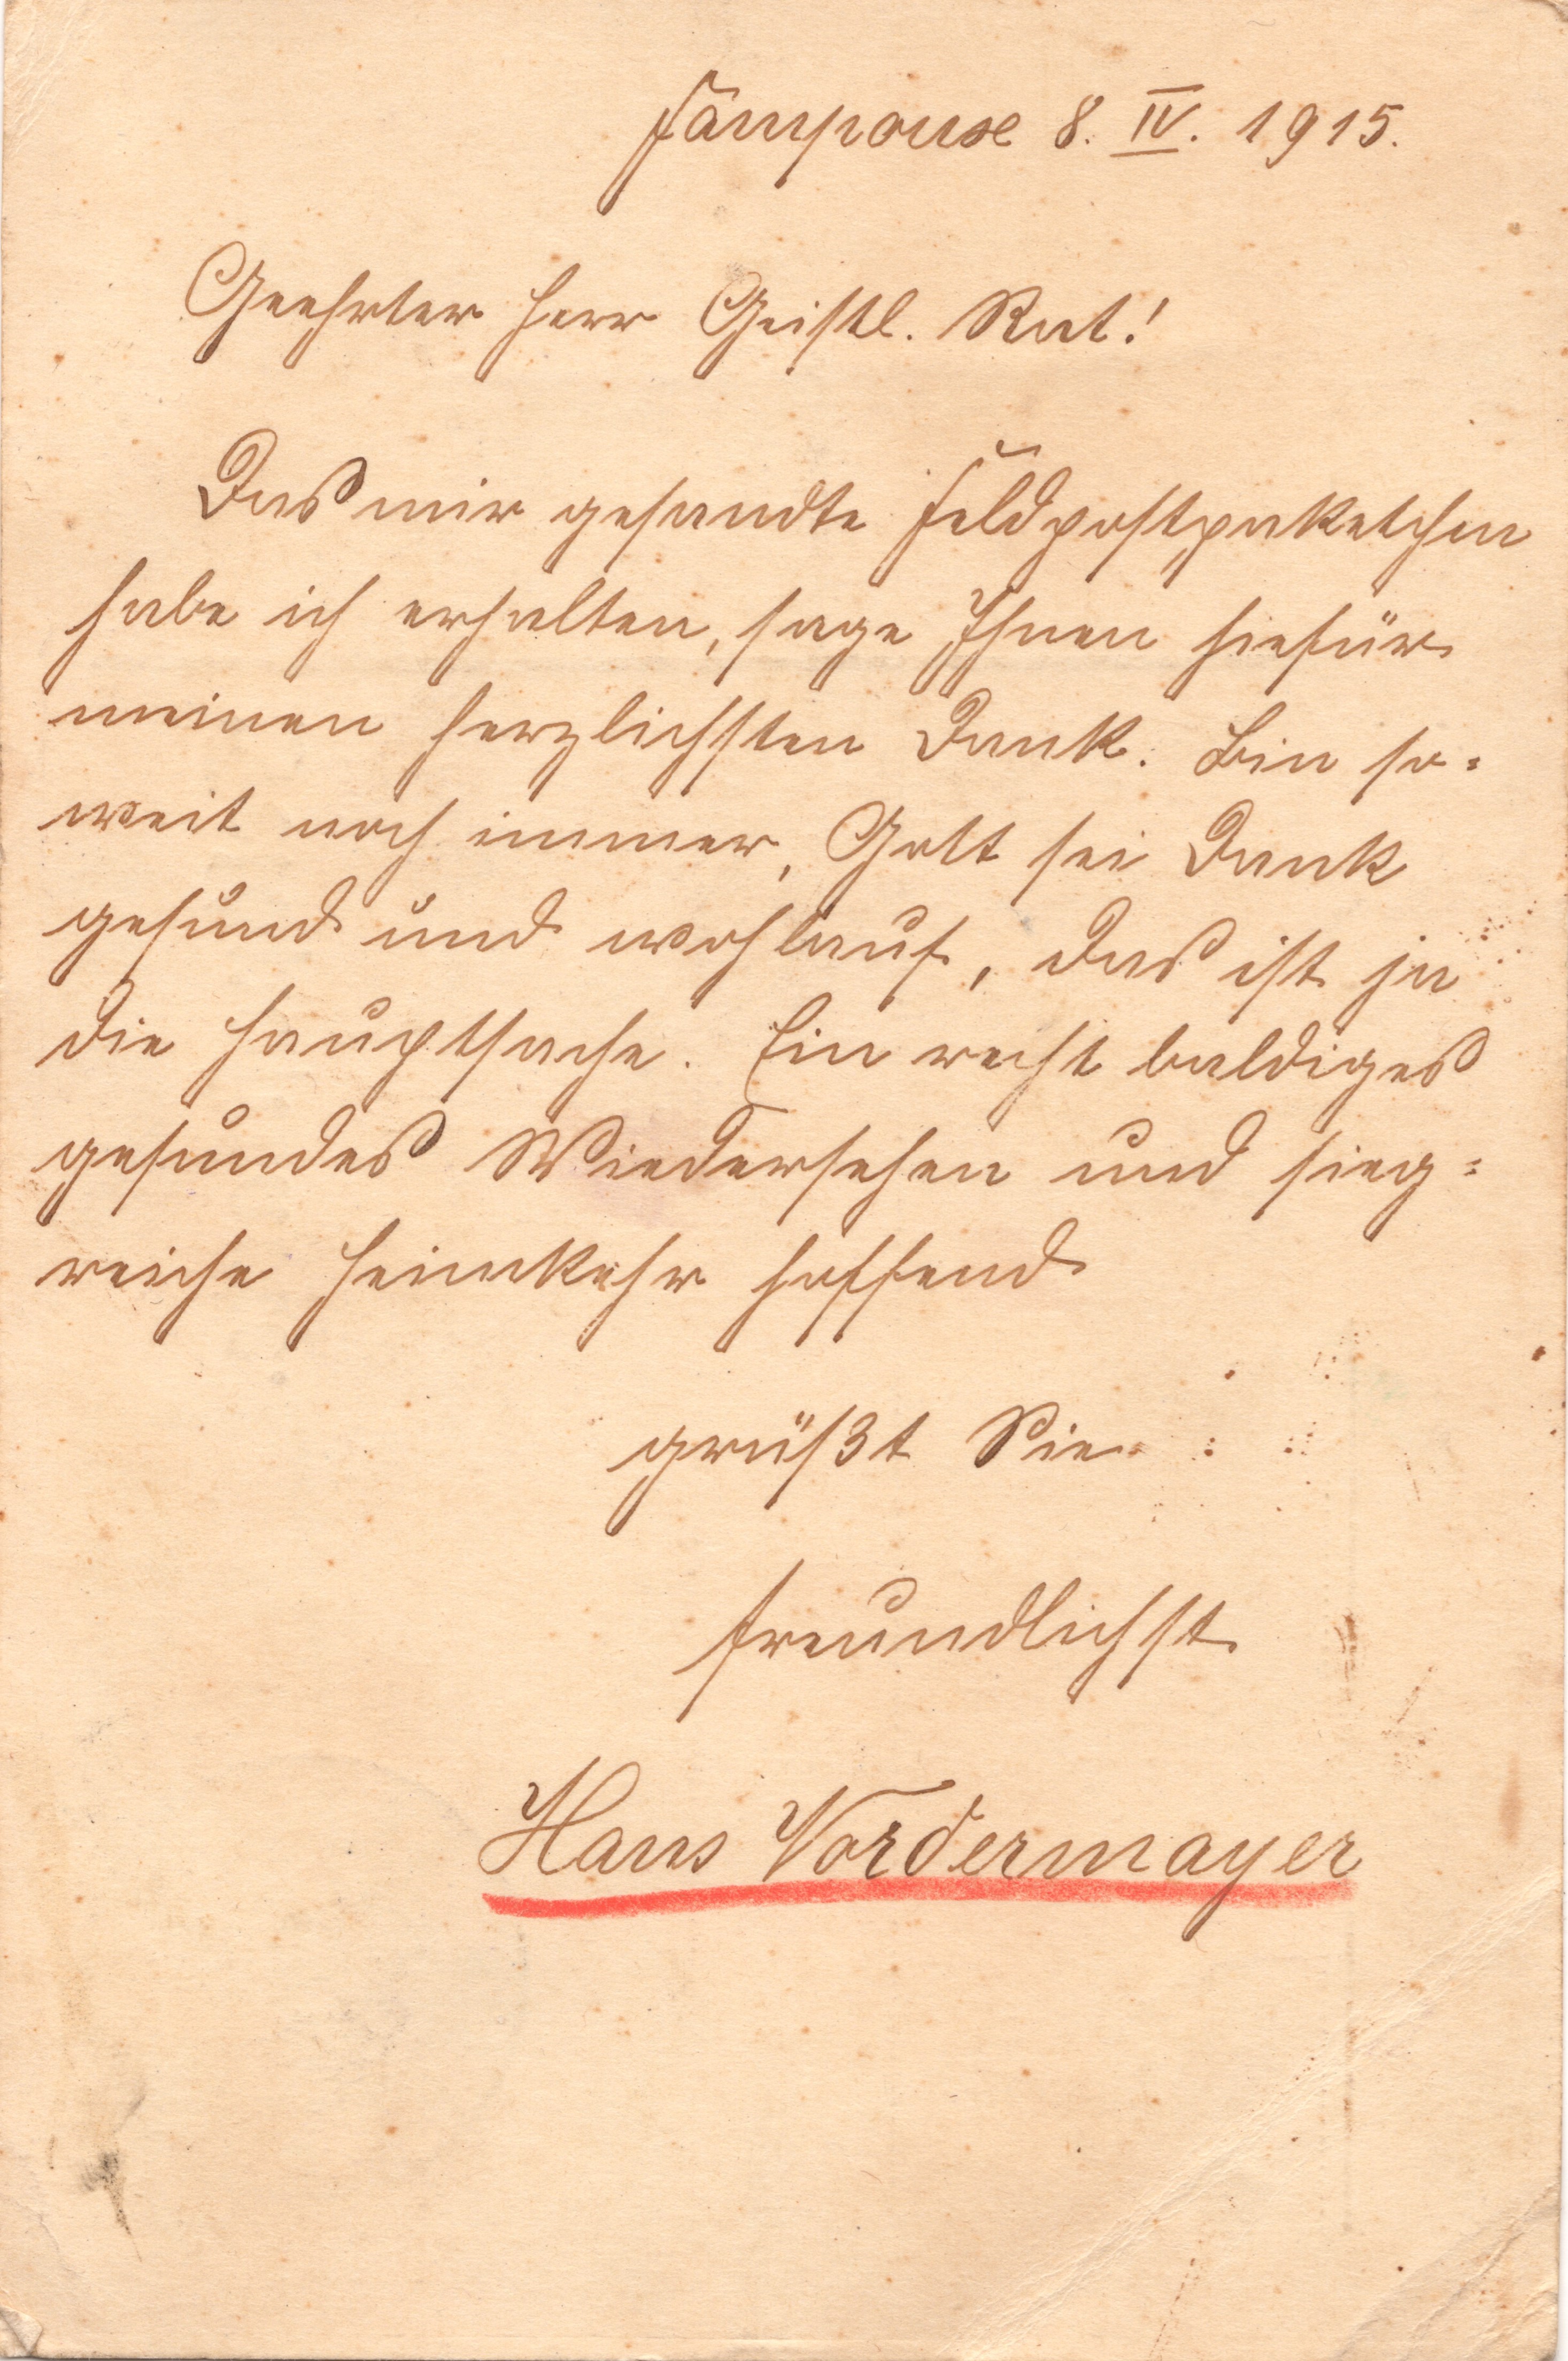 Fampoux 8. IV. 1915.
Geehrter Herr Geistl. Rat!
Das mir gesandte Feldpostpaketchen
habe ich erhalten, sage Ihnen hiefür
meinen herzlichsten Dank. Bin so-
weit noch immer, Gott sei Dank
gesund und wohlauf, das ist ja
die Hauptsache. Ein recht baldiges
gesundes Wiedersehen und sieg-
reiche Heimkehr hoffend
grüßt Sie
freundlichst
Hans Vordermayer